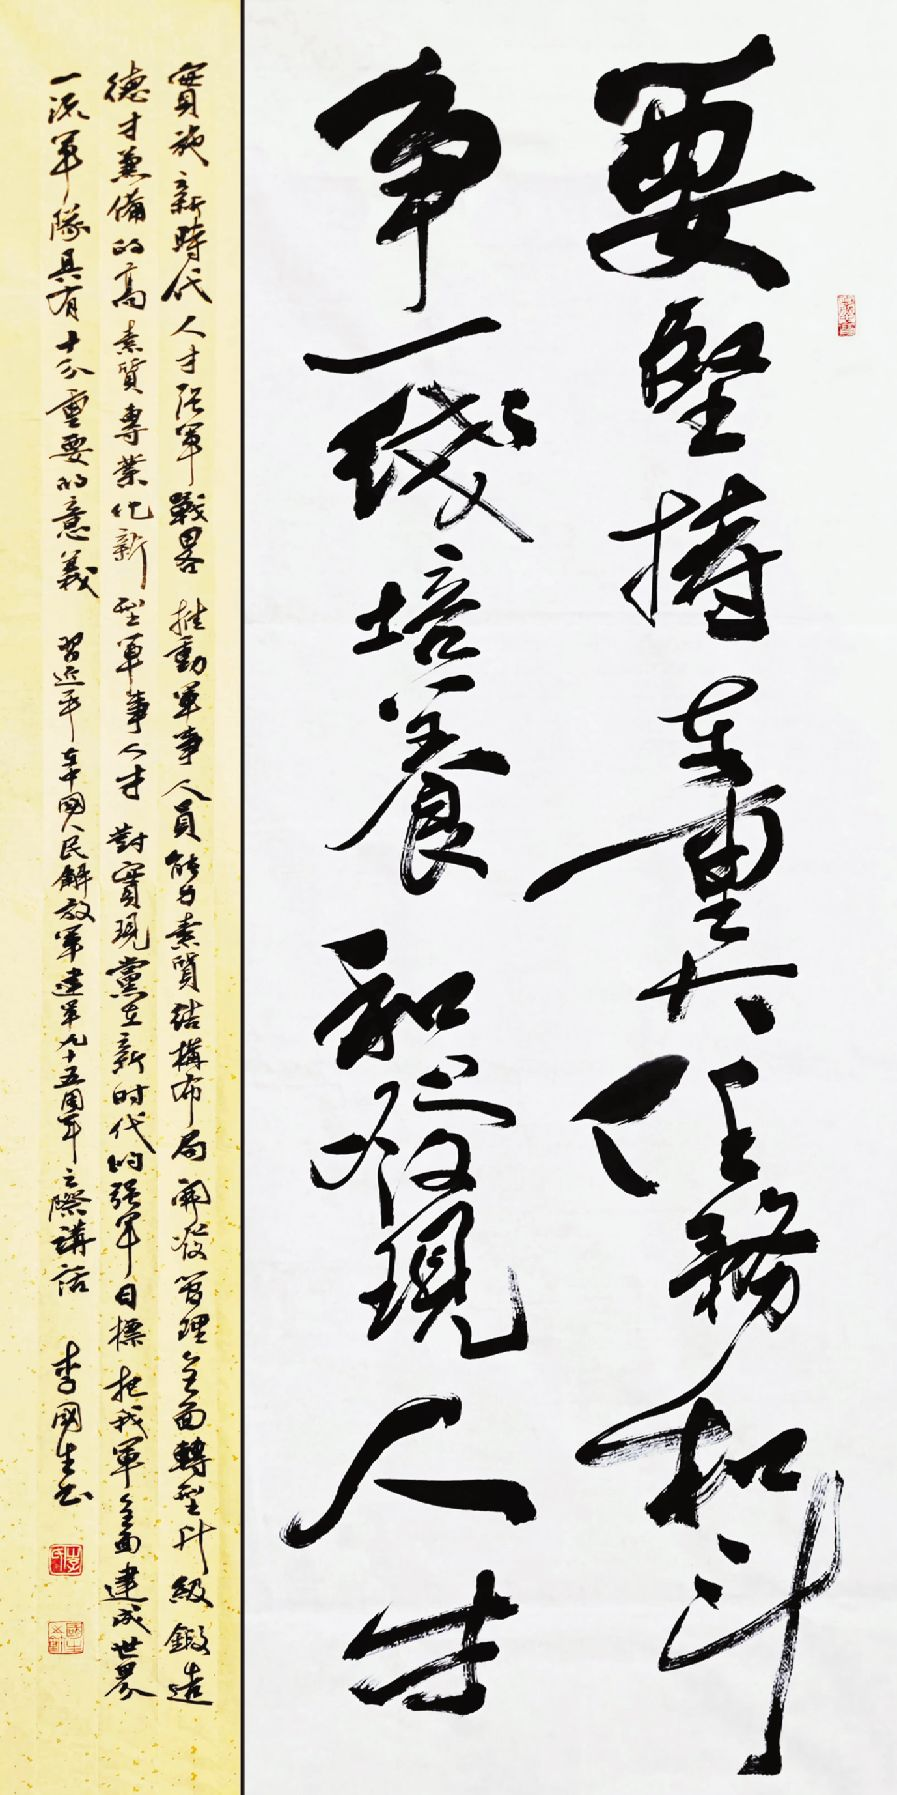 要堅持在重大任務和斗
争一线培養和發現人才
實施新時代人才强軍戰略 推動軍事人員能力素質結構布局 開發管理全面轉型升級 鍛造
德才兼備的高素質專業化新型軍事人才 對實現黨在新时代的强軍目標 把我軍全面建成世界
一流軍隊具有十分重要的意義 習近平在中國人民解放軍建軍九十五周年之際講話 李國生书